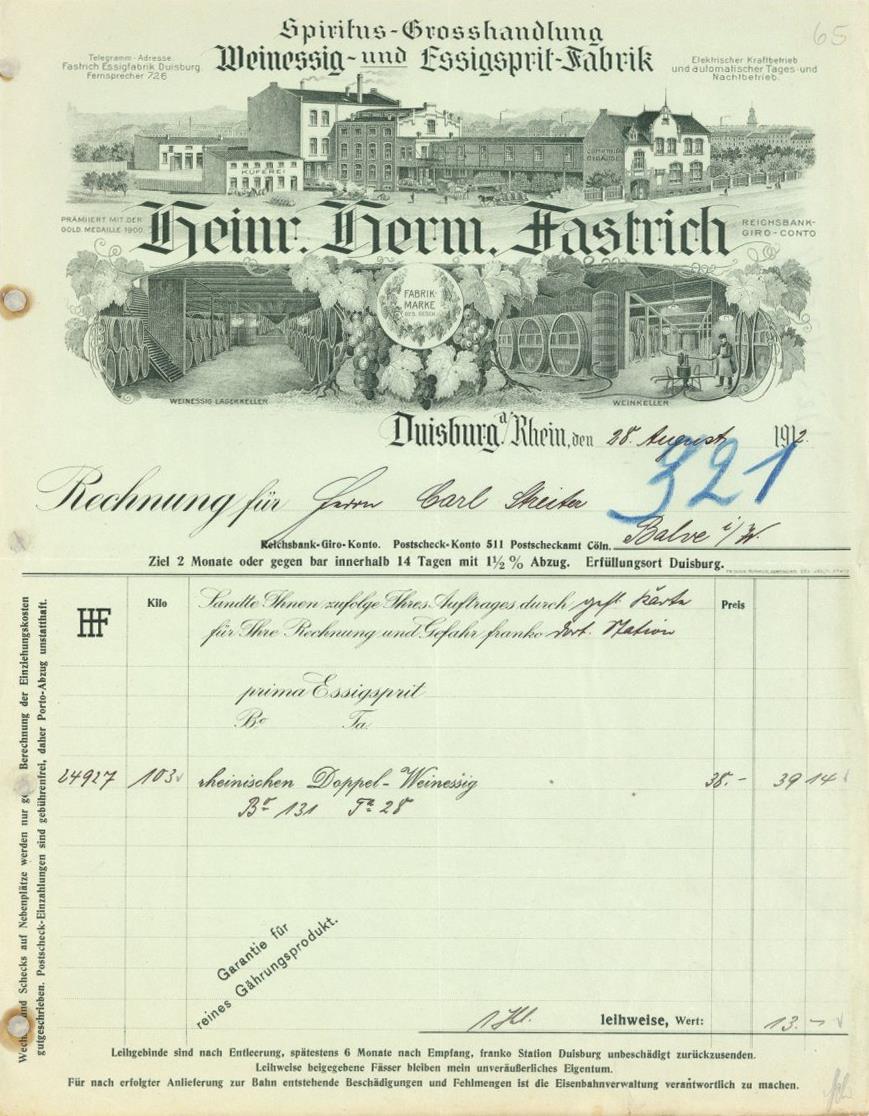 65
Spiritus-Grosshandlung
Weinessig- und Essigsprit-Fabrik
Telegramm-Adresse
Fastrich Essigfabrik Duisburg.
Fernsprecher 726
Elektrischer Kraftbetrieb
und automatischer Tages- und
Nachtbetrieb.
KÜFEREI
PRÄMIIERT MIT DER
GOLD. MEDAILLE 1900.
Heinr. Herm. Fastrich
REICHSBANK-
GIRO-CONTO
FABRIK-
MARKE
GES. GESCH.
WEINESSIG LAGERKELLER
WEINKELLER
Duisburg a/Rhein, den 28. August 1912.
321
Rechnung für Herrn Carl Streiter
Balve i/W.
Reichsbank-Giro-Konto. Postscheck-Konto 511 Postscheckamt Cöln.
Ziel 2 Monate oder gegen bar innerhalb 14 Tagen mit 1½ % Abzug. Erfüllungsort Duisburg.
HHF
Kilo
Sandte Ihnen zufolge Ihres Auftrages durch gefl. Karte
Preis
für Ihre Rechnung und Gefahr franko dort. Station
prima Essigsprit
Bo Ta.
24927 103 rheinischen Doppel-Weinessig 38.- 39 14
Bo 131 Ta 28
Garantie für
reines Gährungsprodukt.
leihweise, Wert: 13.-
Leihgebinde sind nach Entleerung, spätestens 6 Monate nach Empfang, franko Station Duisburg unbeschädigt zurückzusenden.
Leihweise beigegebene Fässer bleiben mein unveräußerliches Eigentum.
Für nach erfolgter Anlieferung zur Bahn entstehende Beschädigungen und Fehlmengen ist die Eisenbahnverwaltung verantwortlich zu machen.
und Schecks auf Nebenplätze werden nur Berechnung der Einziehungskosten
gutgeschrieben. Postscheck-Einzahlungen sind gebührenfrei, daher Porto-Abzug unstatthaft.